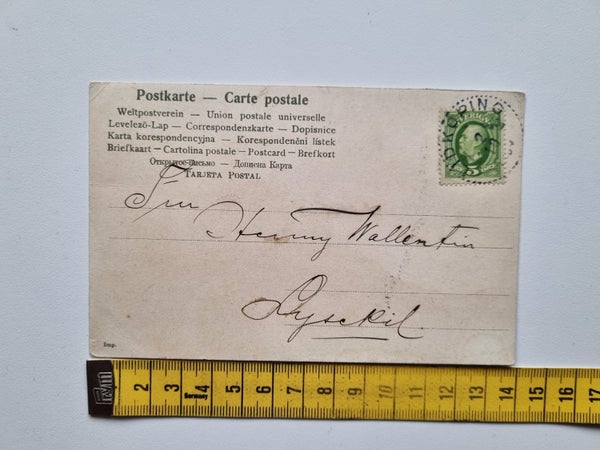 Postkarte — Carte postale
Weltpostverein — Union postale universelle
Levelező-Lap — Correspondenzkarte — Dopisnice
Karta korespondencyjna — Korespondenční lístek
Briefkaart — Cartolina postale — Postcard — Brefkort
Открытое письмо — Дописна Карта
TARJETA POSTAL
SVERIGE
5
Fru
Henny Wallentin
Lysekil.
Imp.
2 3 4 5 6 7 8 9 10 11 12 13 14 15 16 17
Germany